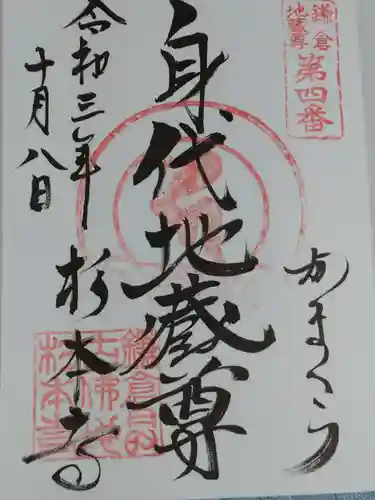 鎌倉
地蔵尊
第四番
かまくら
身代地蔵尊
杉本寺
令和三年
十月八日